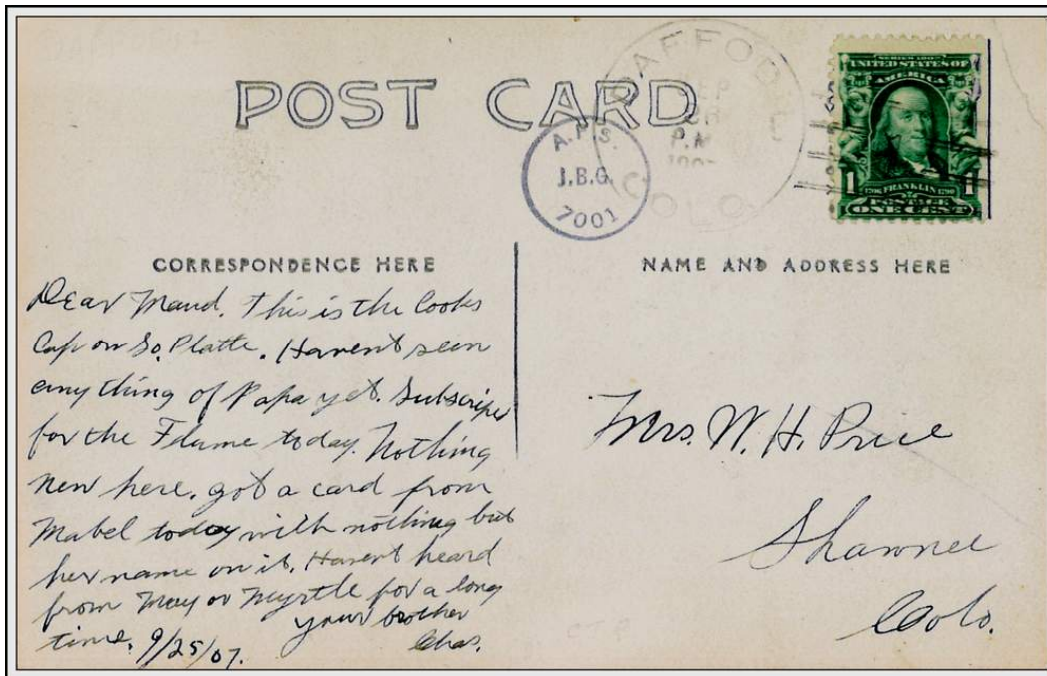 POST CARD
SAFFORD
SEP
P.M.
COLO.
A.P.S.
J.B.G.
7001
SERIES 1902
UNITED STATES OF
AMERICA
1 1706 FRANKLIN 1790 1
POSTAGE
ONE CENT
CORRESPONDENCE HERE
Dear Maud. This is the Cooks
Cap on So. Platte. Havent seen
any thing of Papa yet. Subscripe
for the Flume today. Nothing
new here. got a card from
Mabel today with nothing but
her name on it. Havent heard
from May or Myrtle for a long
time. your brother
9/25/07. Chas.
NAME AND ADDRESS HERE
Mrs. W. H. Price
Shawnee
Colo.